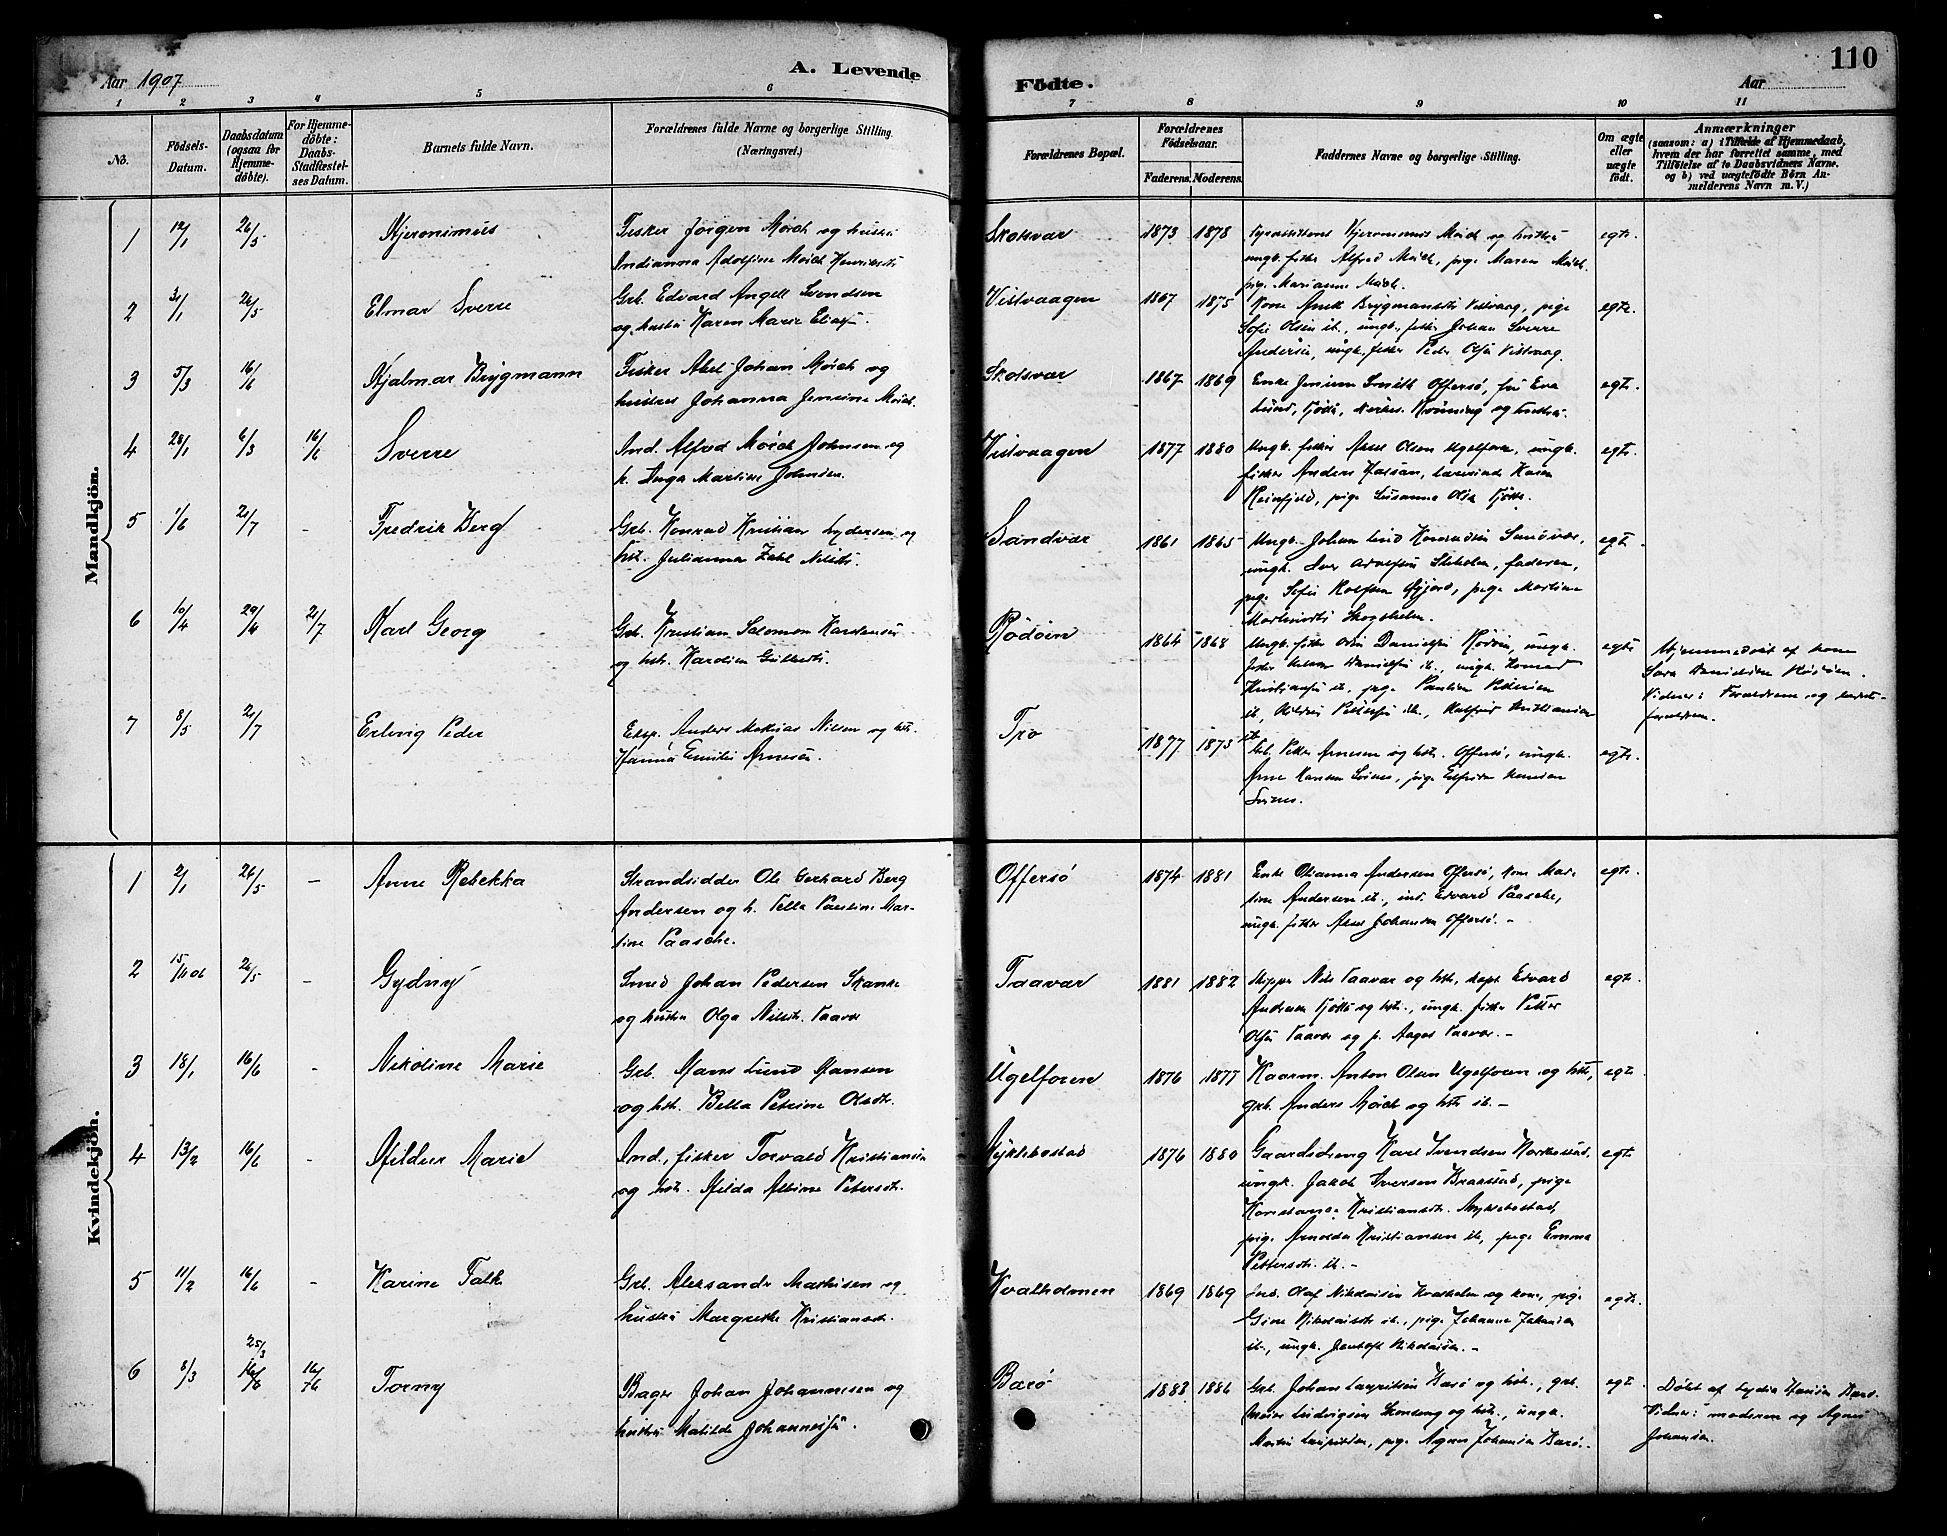 Aar 1907
A. Levende
Födte.
Aar
110
1 2 3 4 5 6 7 8 9 10 11
No.
Födsels-
Datum.
Daabsdatum
(ogsaa for
Hjemme-
döbte).
For Hjemme-
döbte:
Daabs-
Stadfæstel-
ses Datum.
Barnets fulde Navn.
Forældrenes fulde Navne og borgerlige Stilling.
(Næringsvei.)
Forældrenes Bopæl.
Forældrenes
Födselsaar.
Faderens. Moderens.
Faddernes Navne og borgerlige Stilling.
Om ægte
eller
uægte
födt.
Anmærkninger
(saasom: a) i Tilfælde af Hjemmedaab,
hvem der har forrettet samme, med
Tilföielse af to Daabsvidners Navne.
og b) ved uægtefödte Börn An-
melderens Navn m. V.)
Mandkjön.
1 12/1 26/5 Hjeronimus
Fisker Jörgen Möich og hustru
Indianna Adolfine Möich Henriksdtr
Skotsvær 1873 1878
Hjeronimus Möich og hustru
ungk. fisker Alfred Möich, pige Maren Möich.
pig. Marianne Möich.
egte.
2 31/1 26/5 Elmar Sverre
Grb. Edvard Angell Svendsen
og hustru Karen Marie Eliasd.
Vistvaagen 1867 1875
Kone Anek Brygmannsdtr Vistvaag, pige
Sofie Olsen ib., ungk. fisker Johan Sverre
Andersen, ungk. fisker Peder Olsen Vistvaag.
egte.
3 5/3 16/6 Hjalmar Brygmann
Fisker Abel Johan Möich og
hustru Johanna Jensine Möich.
Skotsvær 1867 1869
Enke Smith Offersö, fru Eva
Lund, Tjötta, og hustru.
egte.
4 28/1 6/3 16/6 Sverre
Ind. Alfred Möich Johnsen og
h. Inga Martine Johnsen.
Vistvaagen 1877 1880
Ungk. fisker Olsen Ugelforen, ungk.
fisker Anders, Karen
Reinfjeld, pige Susanna Olsen Tjötta.
egte.
5 1/6 21/7 - Fredrik Berg
Grb. Konrad Kristian Lydersen og
hst. Julianna Zahl Nilsdtr.
Sandvær 1861 1865
Ungk. Johan Lind Konradsen Sandvær,
ungk. Iver Adolfsen, faderen,
pige Sofie, pige Martine
Skogsholm.
egte.
6 10/4 29/4 21/7 Karl Georg
Grb. Kristian Salomon Karstensen
og hst. Karoline Gulbrdtr.
Rödöen 1864 1868
Ungk. fisker Odin Danielsen Rödöen, ungk.
fisker Danielsen ib., ungk. Konrad
Kristiansen ib., pige Pauline Pettersen
ib., Pettersen ib., Kristiansen
ib.
egte
Hjemmedöbt af kone
Sara Danielsen Rödöen.
Vidner: Forældrene og bedste-
forældrene.
7 8/5 21/7 Erling Peder
Eksp. Anders Mathias Nilsen og hst.
Hanna Emilie Arnesen.
Tro 1877 1875
Grb. Petter Arnesen og hst. Offersö, ungk.
Arne Hansen Svines, pige Elfrida Hansen
Svines.
egte.
Kvindekjön.
1 2/1 26/5 - Anne Rebekka
Strandsidder Ole Gerhard Berg
Andersen og h. Pella Pauline Mar-
tine Paasche.
Offersö 1874 1881
Enke Olianna Andersen Offersö, kone Mar-
tine Andersen ib., ind. Edvard Paasche,
ungk. fisker Johansen Offersö. -
egte.
2 15/11 06 26/5 - Gydny
Smed Johan Pedersen Skanke
og hustru Olga Nilsdtr. Taavær
Taavær 1881 1882
Skipper Nils Taavær og hst., kapt. Edvard
Andersen Tjötta og hst., ungk. fisker Petter
Olsen Taavær og p. Aagot Taavær. -
egte.
3 18/1 16/6 - Nikoline Marie
Grb. Hans Lund Hansen
og hst. Bella Petrine Olsdtr.
Ugelforen 1876 1877
Kaarm. Anton Olsen Ugelforen og hst.,
grb. Anders Möich og hst. ib. -
egte.
4 13/2 16/6 - Hildur Marie
Ind., fisker Torvald Kristiansen
og hst. Hilda Albine Petersdtr.
Myklebostad 1876 1880
Gaardsdreng Karl Svendsen,
ungk. Jakob Iversen Braasund, pige
Konstanse Kristiansdtr. Myklebostad,
pige Arnolda Kristiansen ib., pige Emma
Pettersdtr. ib. -
egte.
5 11/2 16/6 - Karine Falk
Grb. Aleksander Mathisen og
hustru Margrethe Kristiansdtr.
Kvalholmen 1869 1869
Ind. Olaf Nikolaisen Kvalholm og kone, pige
Gine Nikolaisdtr. ib., pige Johanna Johansen
ib., ungk. Jentoft Nikolaisen. -
egte.
6 8/3 25/3 16/6 16/6 Torny
Bager Johan Johannesen og
hustru Matilde Johannesen.
Barö 1883 1886
Grb. Johan Lauritsen Barö og hst., grb.
Meier Ludvigsen og hst., ungk.
Martin Lauritsen, pige Agnes Johansen Barö. -
egte.
Döbt af Lydia Hansen Barö.
Vidner: moderen og Agnes
Johansen.